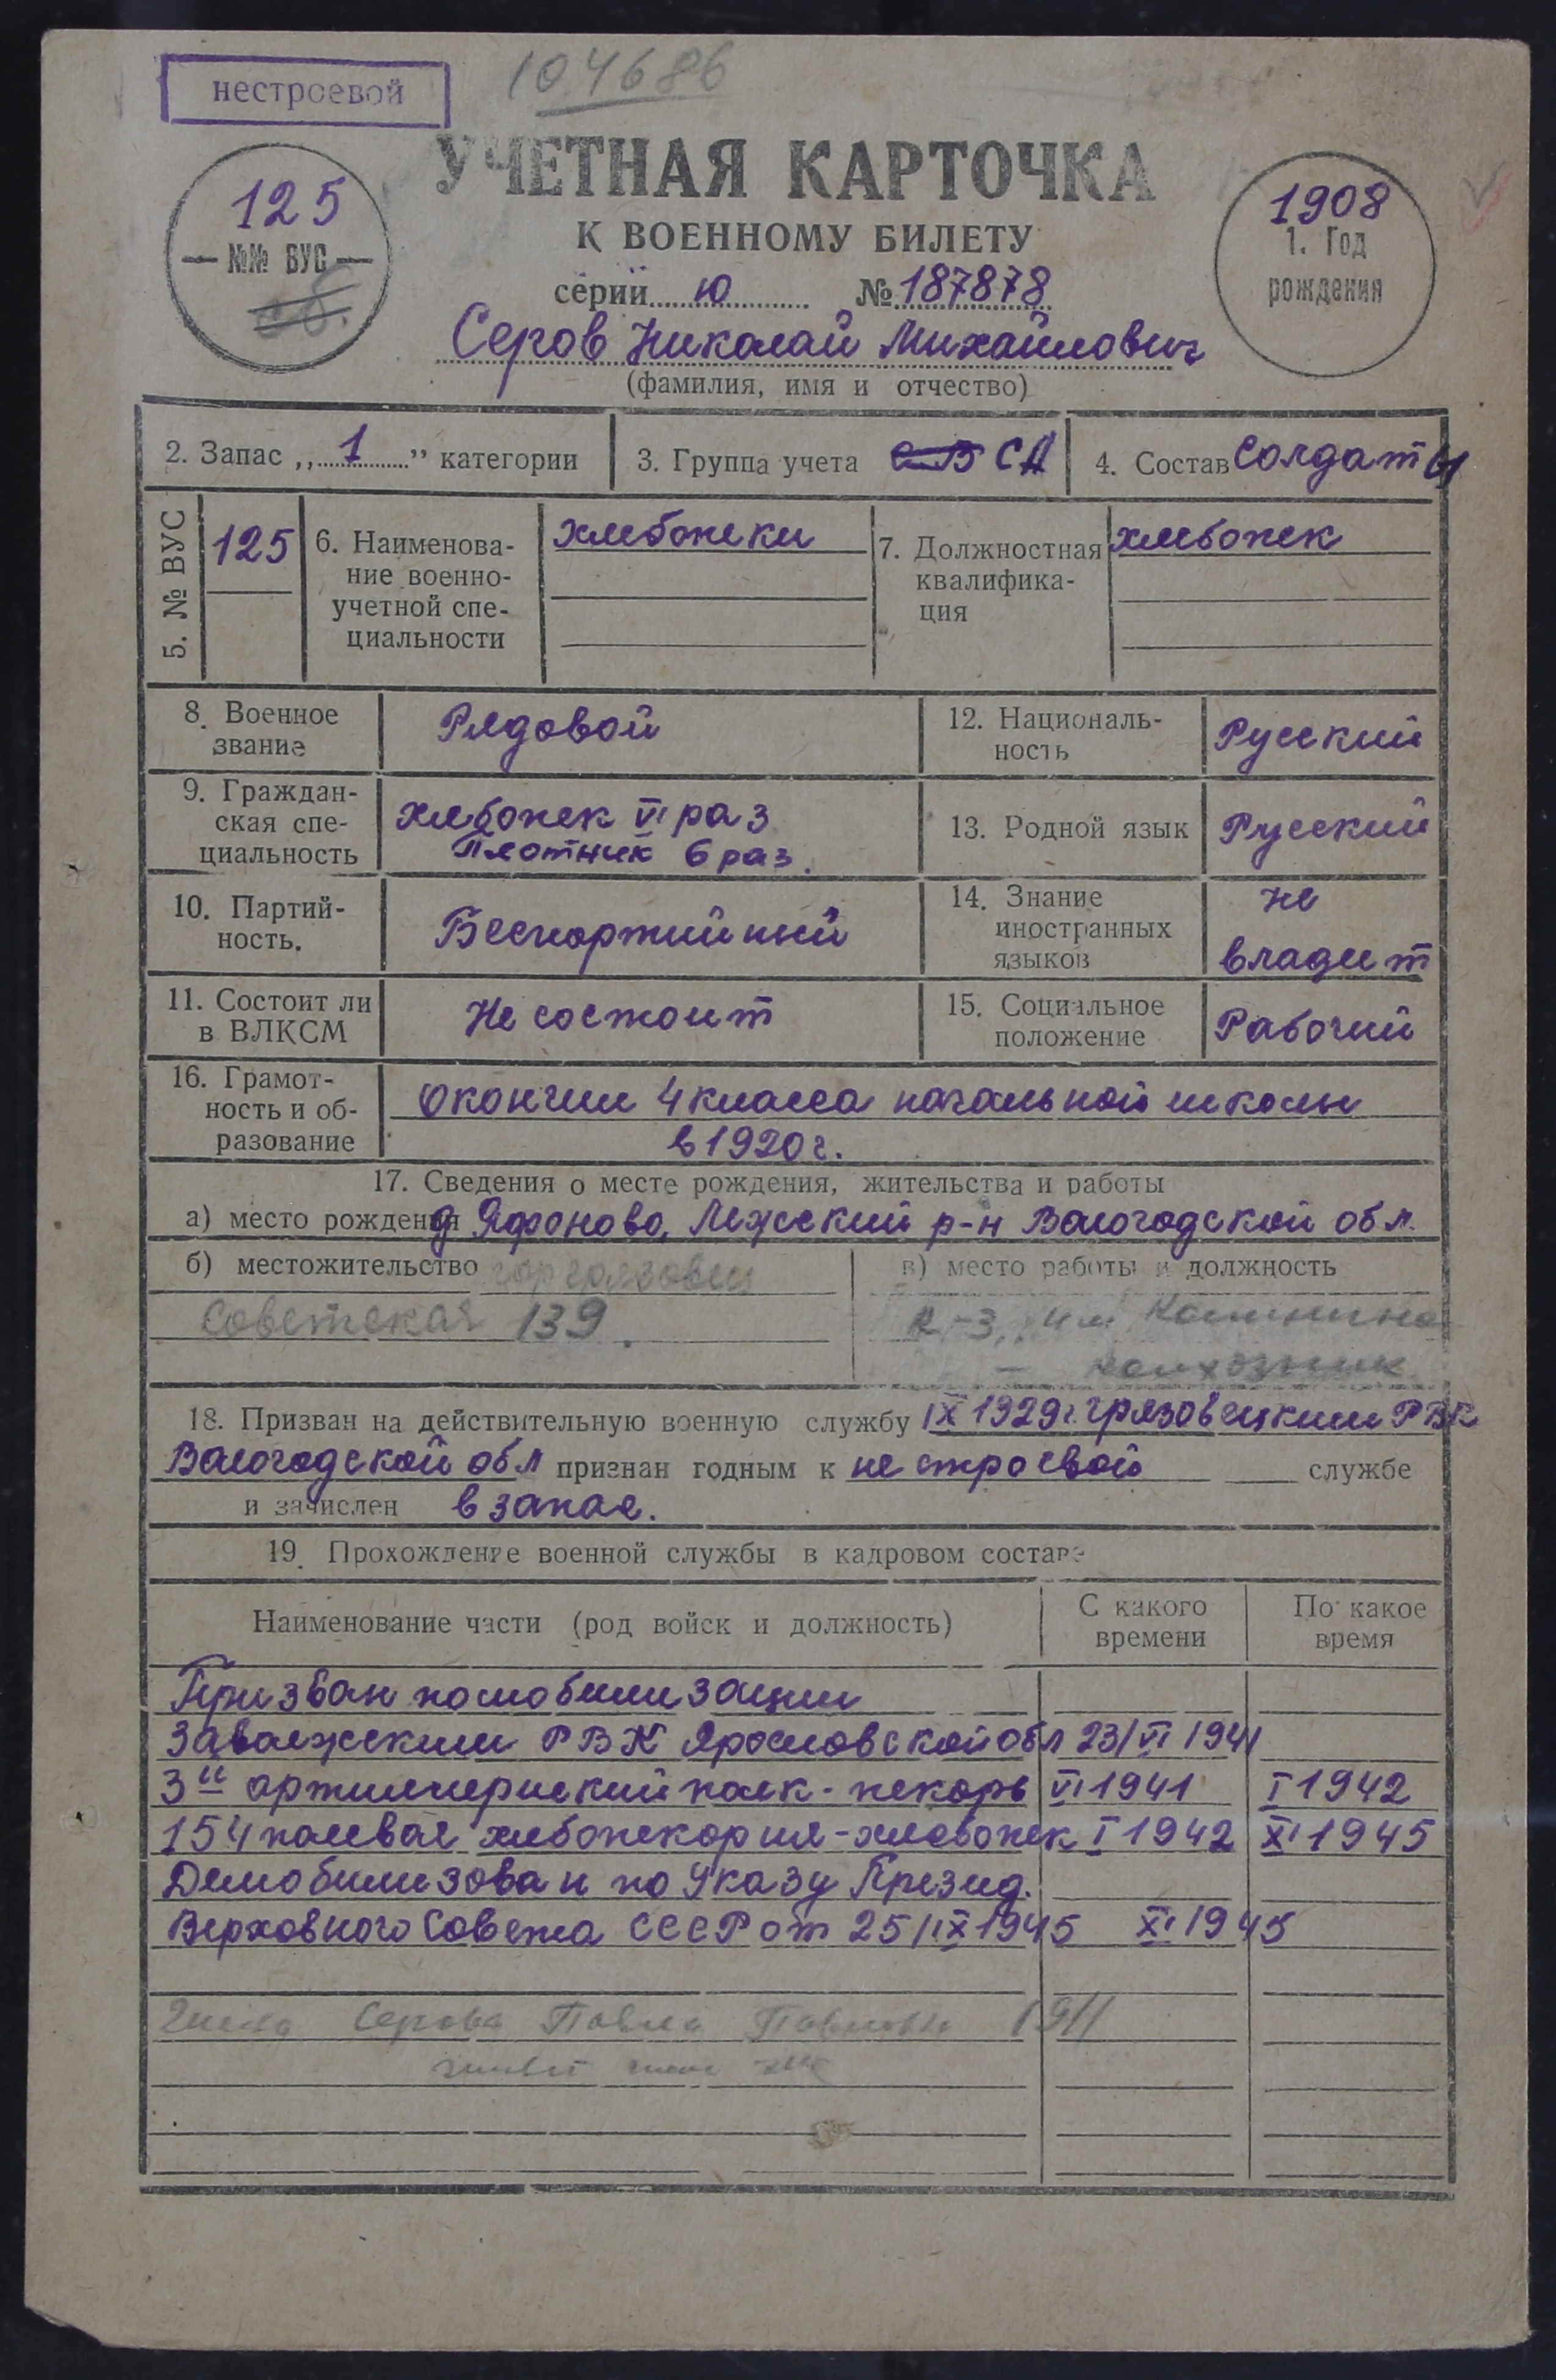 нестроевой
104686
УЧЕТНАЯ КАРТОЧКА
К ВОЕННОМУ БИЛЕТУ
серии ю № 187878
125
№№ ВУС
1908
1. Год
рождения
Серов Николай Михайлович
(фамилия, имя и отчество)
2. Запас „ 1 ” категории
3. Группа учета СВ СА
4. Состав Солдаты
5. № ВУС
125
6. Наименова-
ние военно-
учетной спе-
циальности
хлебопеки
7. Должностная
квалифика-
ция
хлебопек
8. Военное
звание
Рядовой
12. Националь-
ность
Русский
9. Граждан-
ская спе-
циальность
Хлебопек VI раз
Плотник 6 раз.
13. Родной язык
Русский
10. Партий-
ность.
Беспартийный
14. Знание
иностранных
языков
не
владеет
11. Состоит ли
в ВЛКСМ
Не состоит
15. Социальное
положение
Рабочий
16. Грамот-
ность и об-
разование
Окончил 4 класса начальной школы
в 1920 г.
17. Сведения о месте рождения, жительства и работы
а) место рождения д Яфоново, Лежский р-н Вологодской обл.
б) местожительство гор грязовец
Советская 139.
в) место работы и должность
к-з, им Калинина
— колхозник
18. Призван на действительную военную службу IX 1929 г. грязовецким РВК
Вологодской обл признан годным к не строевой службе
и зачислен в запас.
19. Прохождение военной службы в кадровом составе
Наименование части (род войск и должность)
С какого
времени
По какое
время
Призван по мобилизации
Заволжским РВК Ярославской обл 23/VI 1941
3й артиллерийский полк - пекарь VI 1941 I 1942
154 полевая хлебопекария - хлебопек I 1942 XI 1945
Демобилизован по Указу Презид.
Верховного Совета СССР от 25/IX 1945 XI 1945
Жена Серова Павла Павловна 1911
живет там же